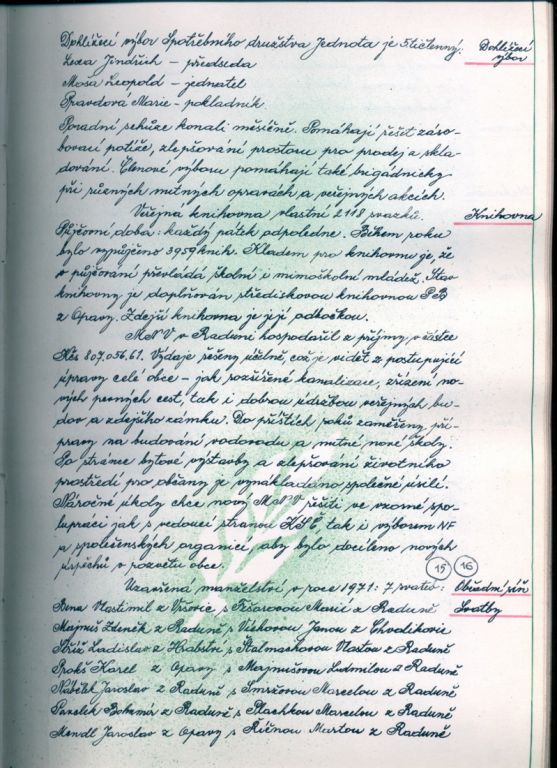 Dohlížecí výbor Spotřebního družstva Jednota je 5tičlenný: Dohlížecí výbor
Lexa Jindřich – předseda
Moša Leopold – jednatel
Spravdová Marie – pokladník.
Poradní schůze konali měsíčně. Pomáhají řešit záso-
bovací potíže, zlepšování prostoru pro prodej a skla-
dování. Členové výboru pomáhají také brigádnicky
při různých nutných opravách a veřejných akcích.
Veřejná knihovna vlastní 2118 svazků. Knihovna
Půjčovní doba: každý pátek odpoledne. Během roku
bylo vypůjčeno 3959 knih. Kladem pro knihovnu je, že
v půjčování převládá školní i mimoškolní mládež. Stav
knihovny je doplňován střediskovou knihovnou
z Opavy. Zdejší knihovna je její odbočkou.
MNV v Raduni hospodařil z příjmy v částce
Kčs 807.056,61. Výdaje řešeny účelně, což je vidět z postupující
úpravy celé obce – jak rozšířené kanalizace, zřízení no-
vých pevných cest, tak i dobrou údržbou veřejných bu-
dov a zdejšího zámku. Do příštích roků zaměřeny pří-
pravy na budování vodovodu a nutné nové školy.
Po stránce bytové výstavby a zlepšování životního
prostředí pro občany je vynakládáno společné úsilí.
Náročné úkoly chce nový MNV řešiti ve vzorné spo-
lupráci jak s vedoucí stranou KSČ, tak i výborem NF
a společenských organizací, aby bylo docíleno nových
úspěchů v rozvětu obce. 15 16
Uzavřená manželství v roce 1971: 7 svateb: Obřadní síň
Svatby
Vlastimil z Vršovic s Marií z Raduně
Majnuš Zdeněk z Raduně s Janou z Chvalíkovic
Stříž Ladislav z Hrabství s Kalmachovou Vlastou z Raduně
Karel z Opavy s Majnušovou Ludmilou z Raduně
Nábělek Jaroslav z Raduně s Smržovou Marcelou z Raduně
Pavelek Bohumír z Raduně s Plachkou Marcelou z Raduně
Mendl Jaroslav z Opavy s Řičnou Martou z Raduně